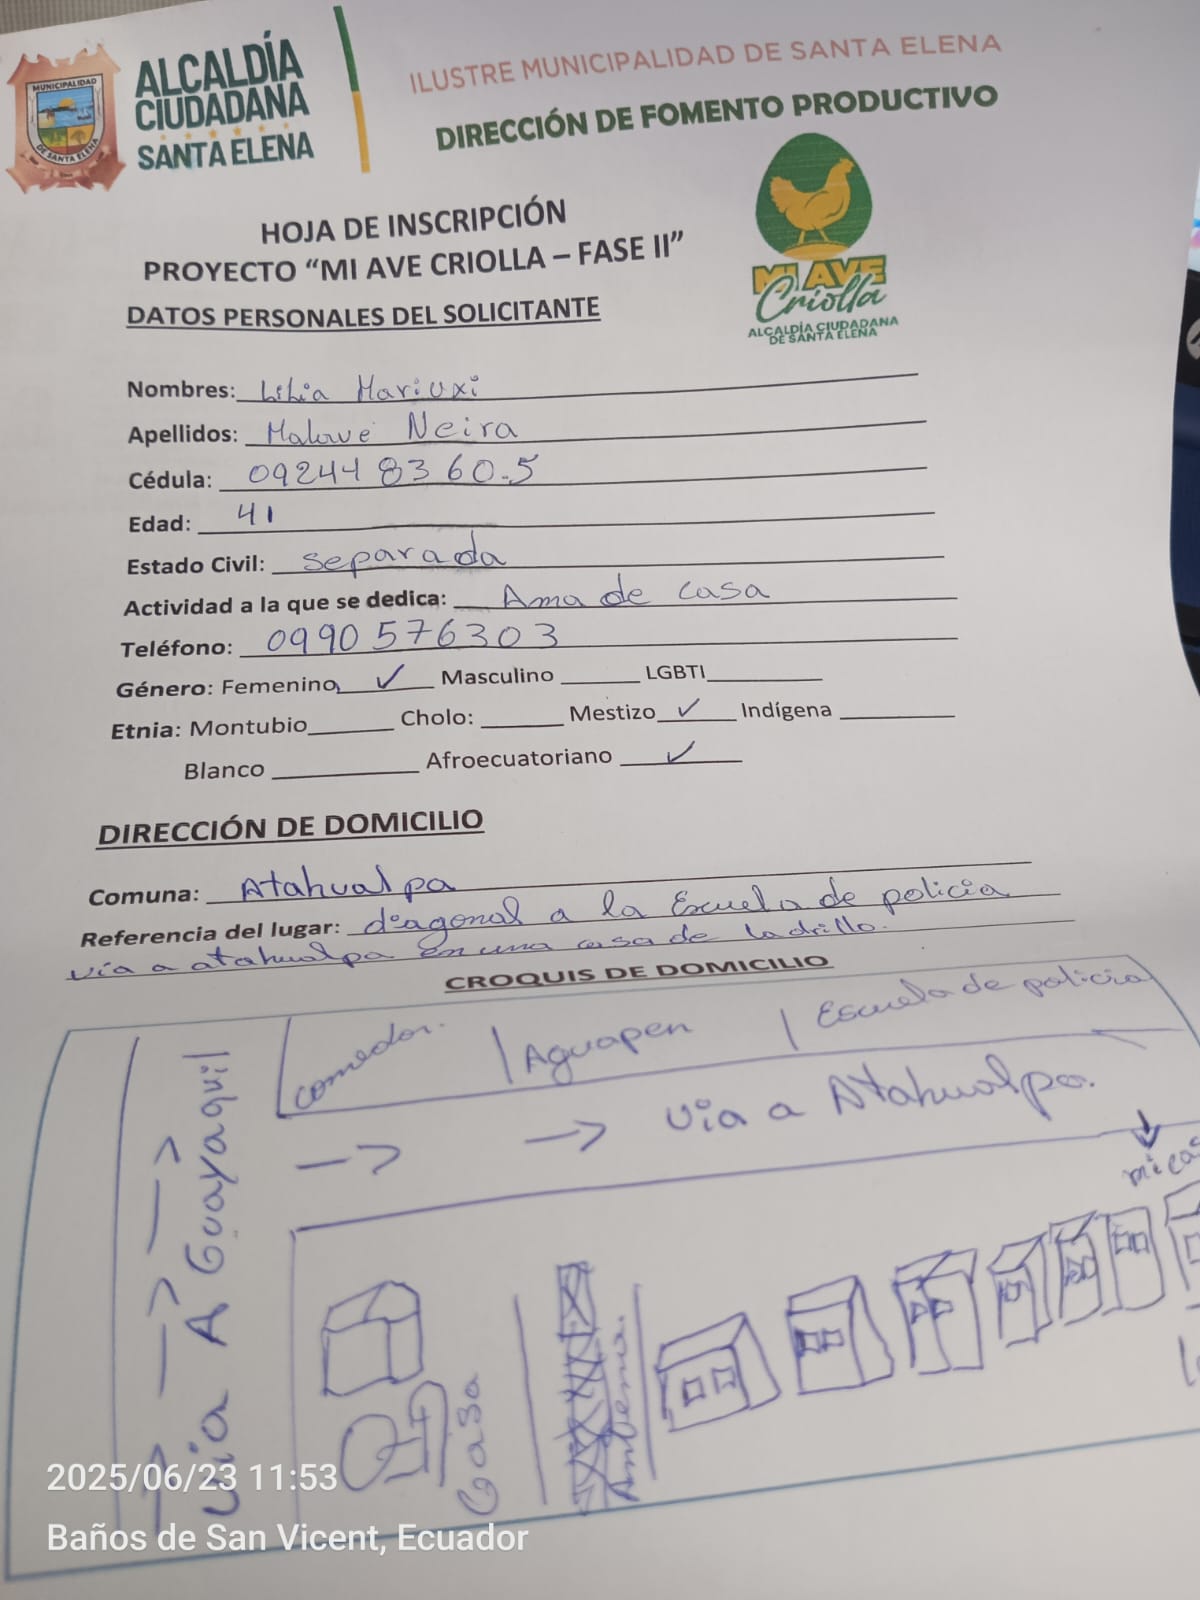 MUNICIPALIDAD
DE SANTA ELENA
ALCALDÍA
CIUDADANA
SANTA ELENA
ILUSTRE MUNICIPALIDAD DE SANTA ELENA
DIRECCIÓN DE FOMENTO PRODUCTIVO
MI AVE
Criolla
ALCALDÍA CIUDADANA
DE SANTA ELENA
HOJA DE INSCRIPCIÓN
PROYECTO “MI AVE CRIOLLA – FASE II”
DATOS PERSONALES DEL SOLICITANTE
Nombres: Lilia Mariuxi
Apellidos: Malave Neira
Cédula: 092448360-5
Edad: 41
Estado Civil: separada
Actividad a la que se dedica: Ama de casa
Teléfono: 0990576303
Género: Femenino ✓ Masculino LGBTI
Etnia: Montubio Cholo: Mestizo ✓ Indígena
Blanco Afroecuatoriano ✓
DIRECCIÓN DE DOMICILIO
Comuna: Atahualpa
Referencia del lugar: diagonal a la Escuela de policia
via a atahualpa en una casa de ladrillo.
CROQUIS DE DOMICILIO
comedor.
Aguapen
Escuela de policia
via A Guayaquil
via a Atahualpa.
mi cas
Casa
Antena.
2025/06/23 11:53
Baños de San Vicent, Ecuador